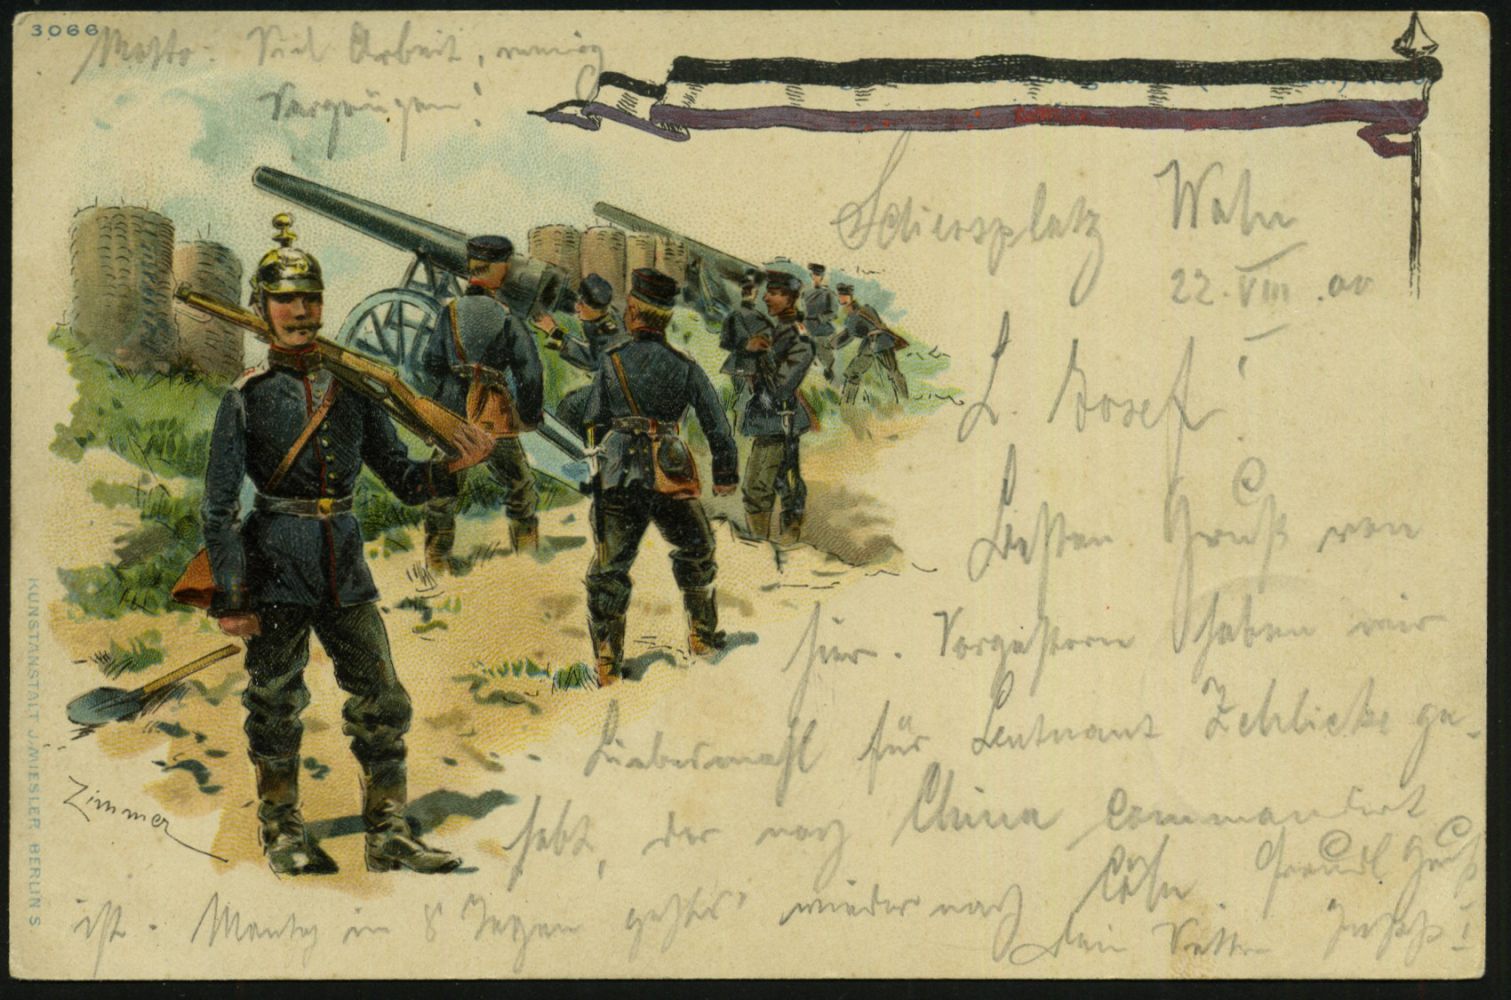 3066
Motto: Viel Arbeit, wenig
Vergnügen!
Schiessplatz Wahn
22.VIII.00
L. Josef!
Besten Gruß von
hier. Vorgestern haben wir
Liebesmahl für Leutnant Zehlicke ge-
habt, der nach China commandirt
ist. Montag in 8 Tagen geht's wieder nach Cöln. Freundl Gruß
Dein Vetter Jupp!
Zimmer
KUNSTANSTALT J. MIESLER BERLIN S